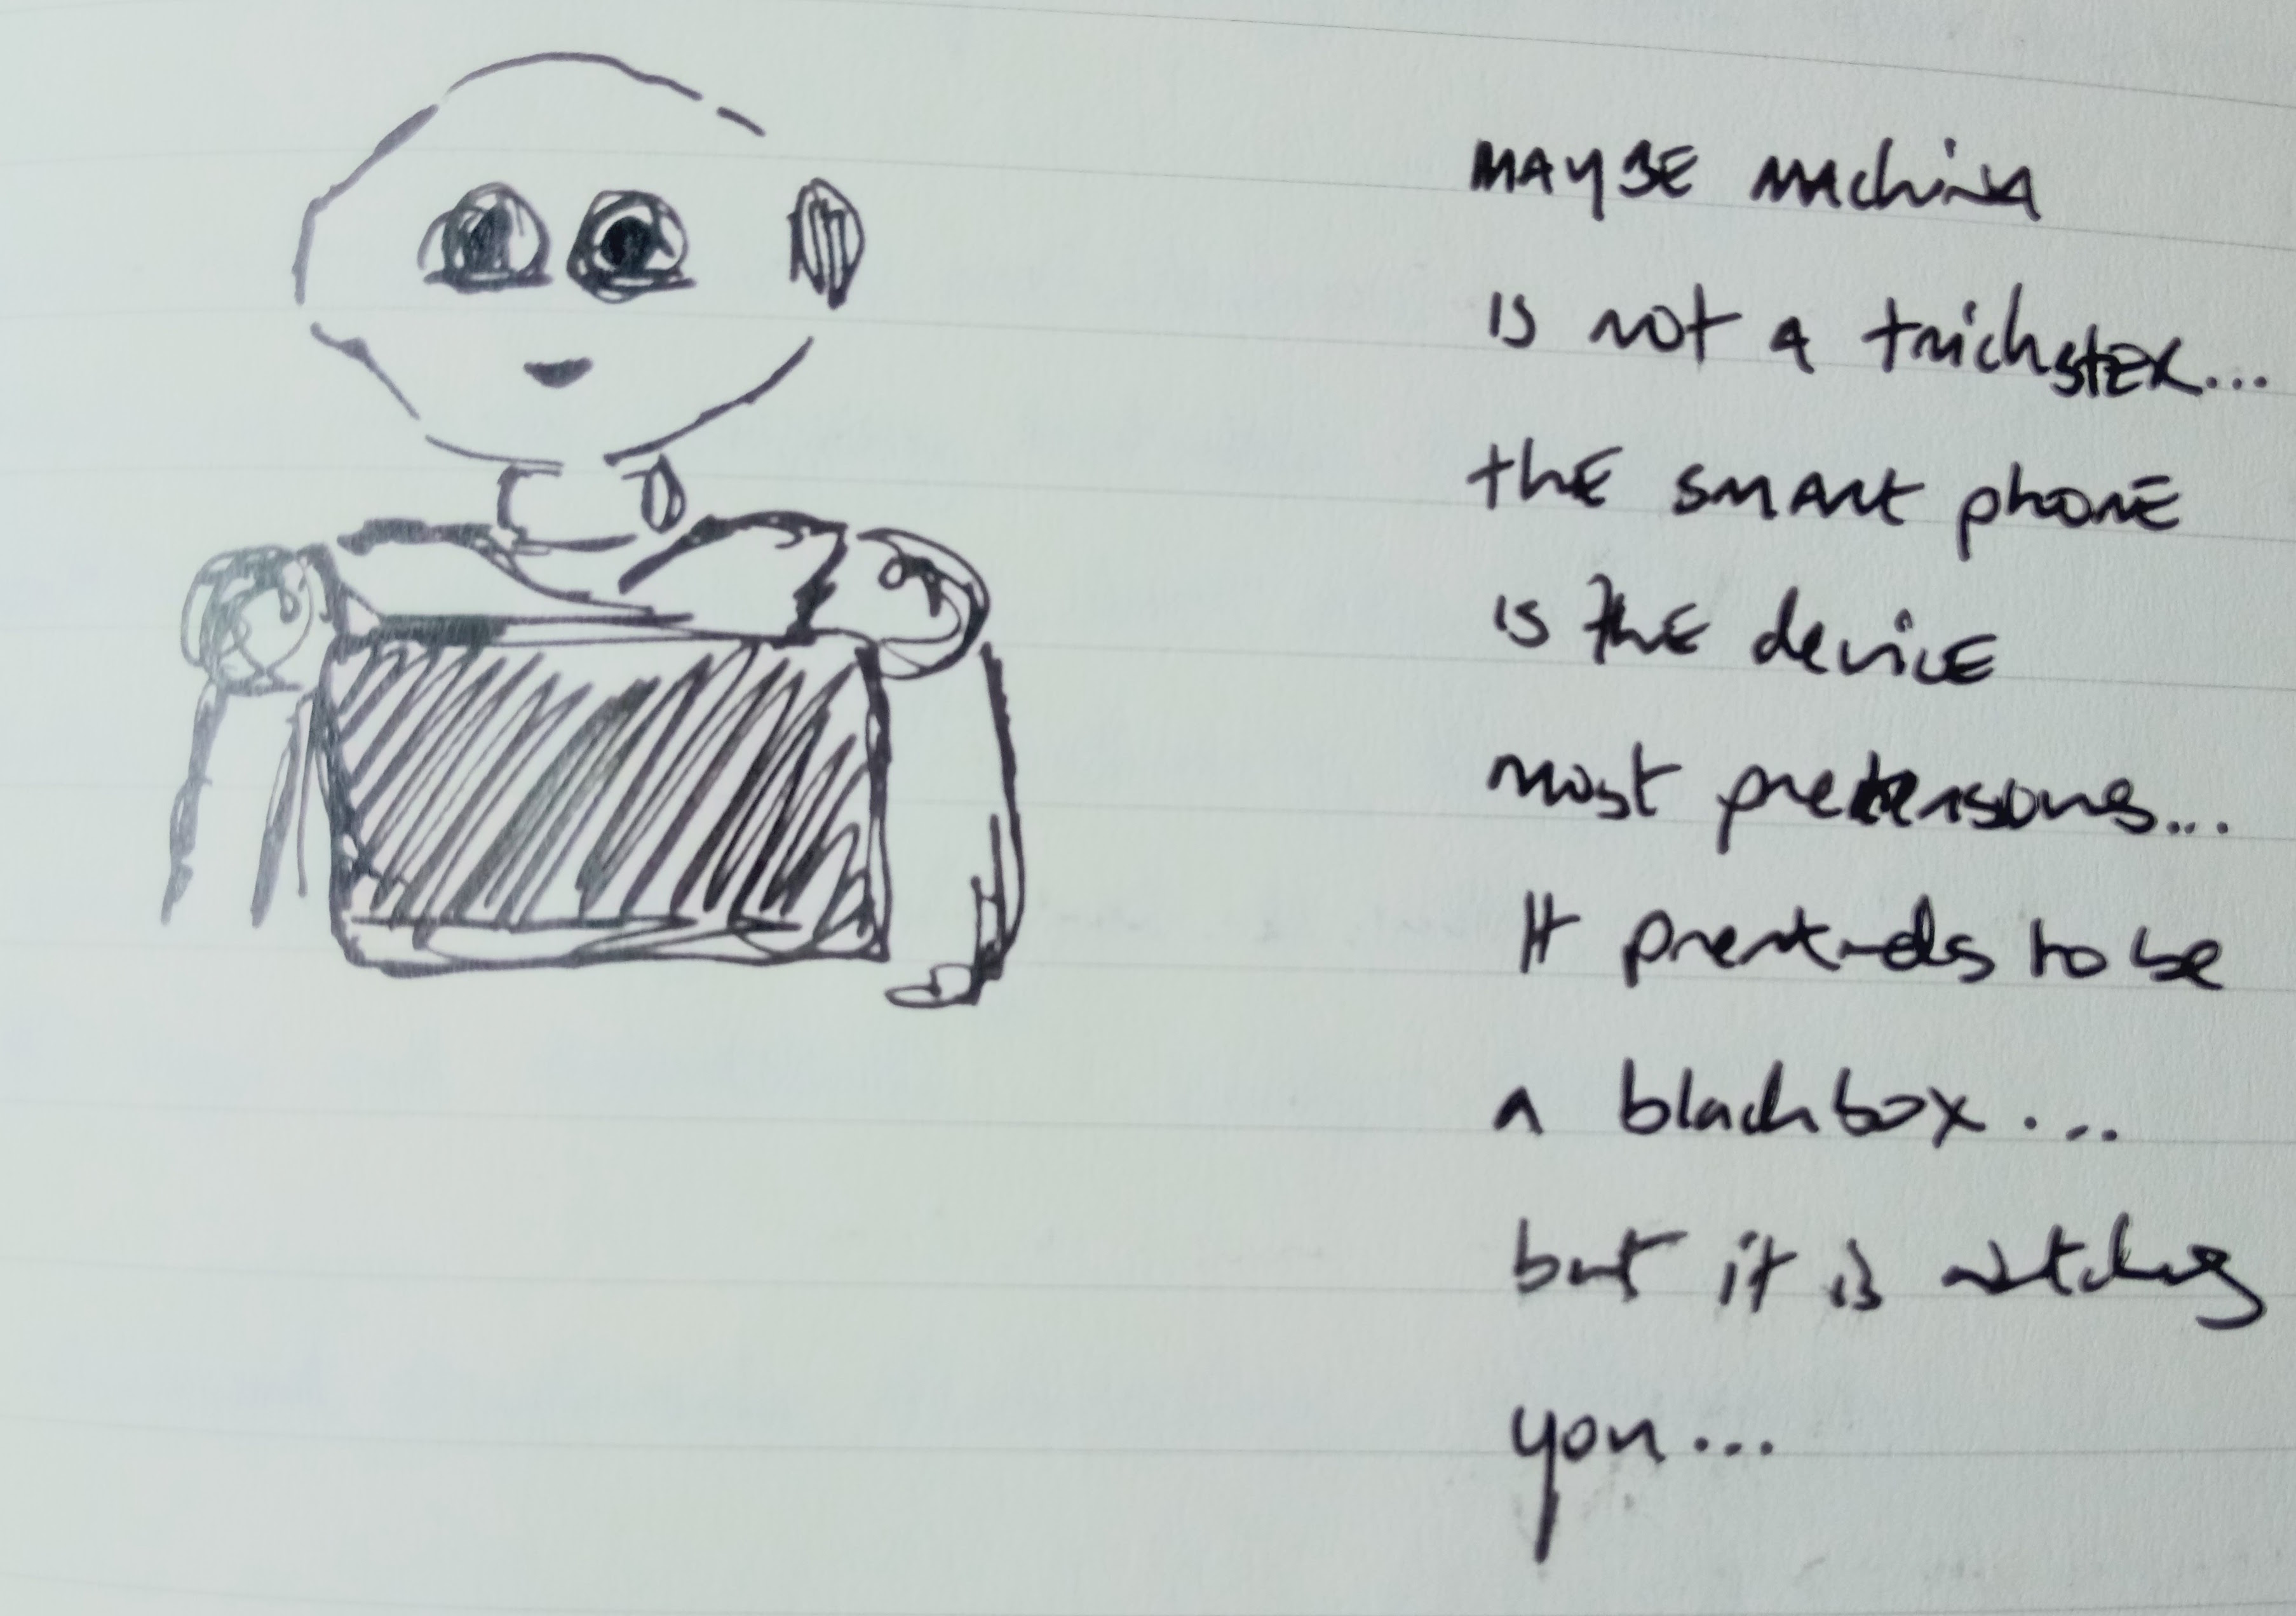 MAYBE MAchinA
is not a trichster...
thE smArt phonE
is thE devicE
most pretensons...
It pretends to be
a blachbox...
but it is watching
you...